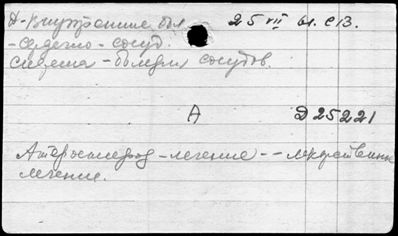 Д-Внутренние бол 25 VII 61. С13.
-сердечно-сосуд.
система-болезни сосудов.
А Д 25221
Атеросклероз -лечение -- лекарственн
лечение.